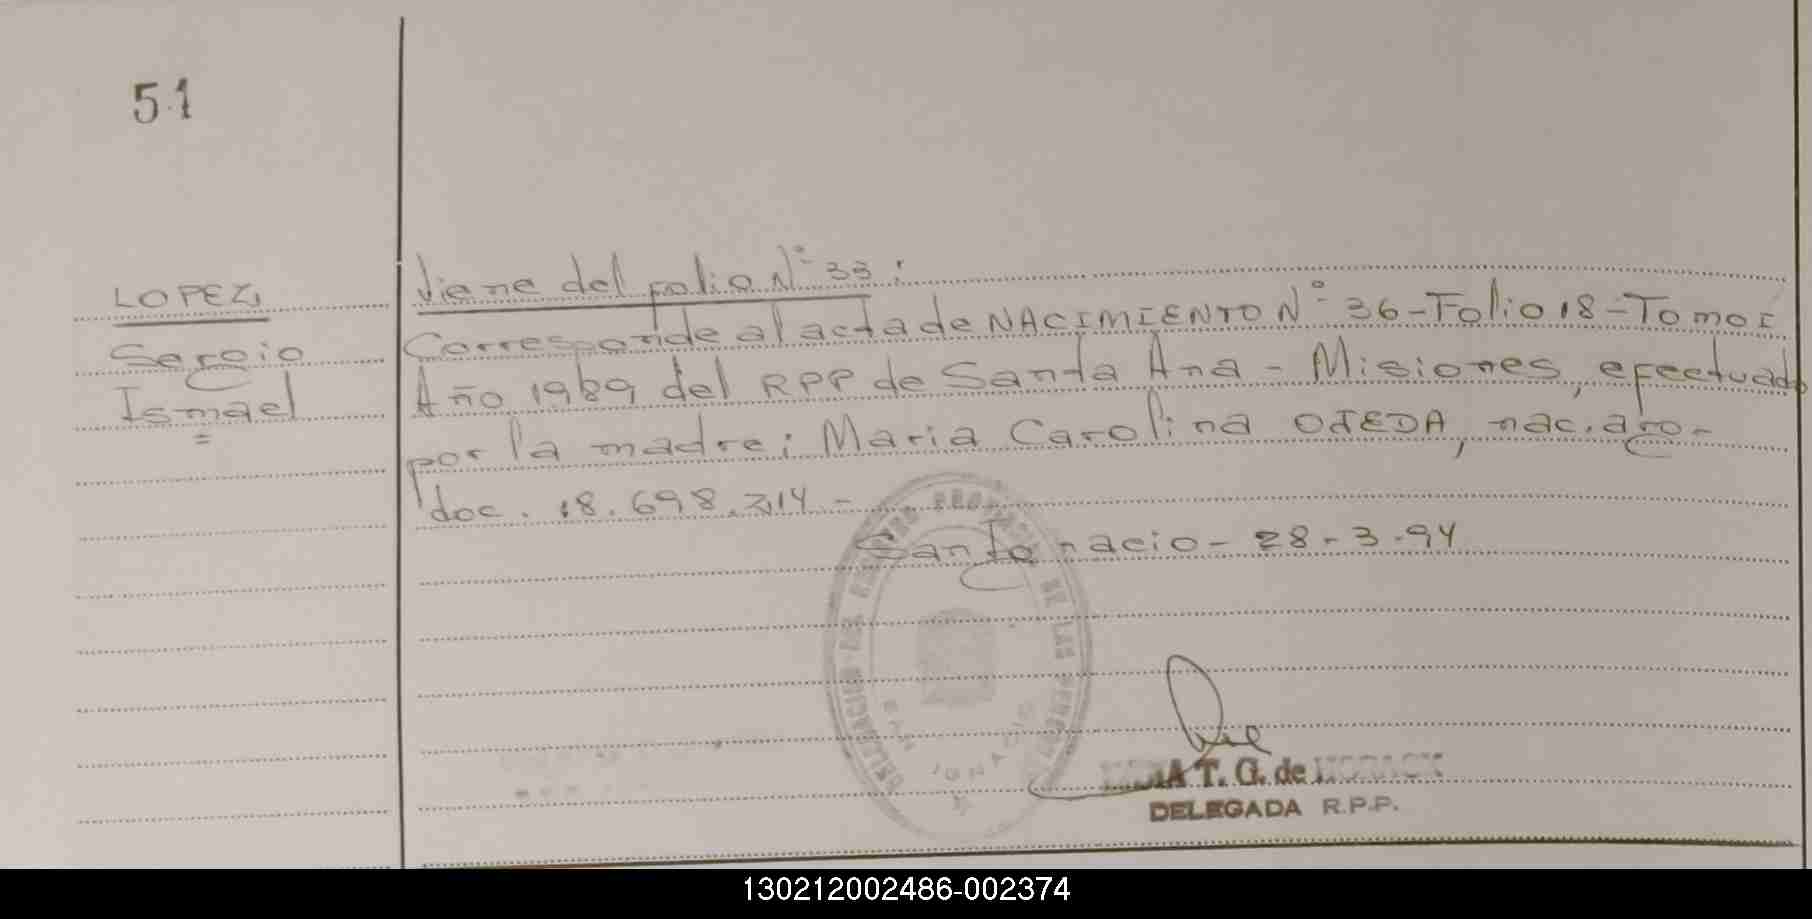 51
LOPEZ,
Sergio
Ismael
Viene del folio N° 33:
Corresponde al acta de NACIMIENTO N° 36-Folio 18-Tomo I
Año 1989 del RPP de Santa Ana - Misiones, efectuado
por la madre: Maria Carolina OJEDA, nac. arg-
doc. 18.698.314-
San Ignacio- 28-3-94
DELEGACION DEL REGISTRO PROVINCIAL DE LAS PERSONAS
SAN IGNACIO
T. G. de
DELEGADA R.P.P.
130212002486-002374